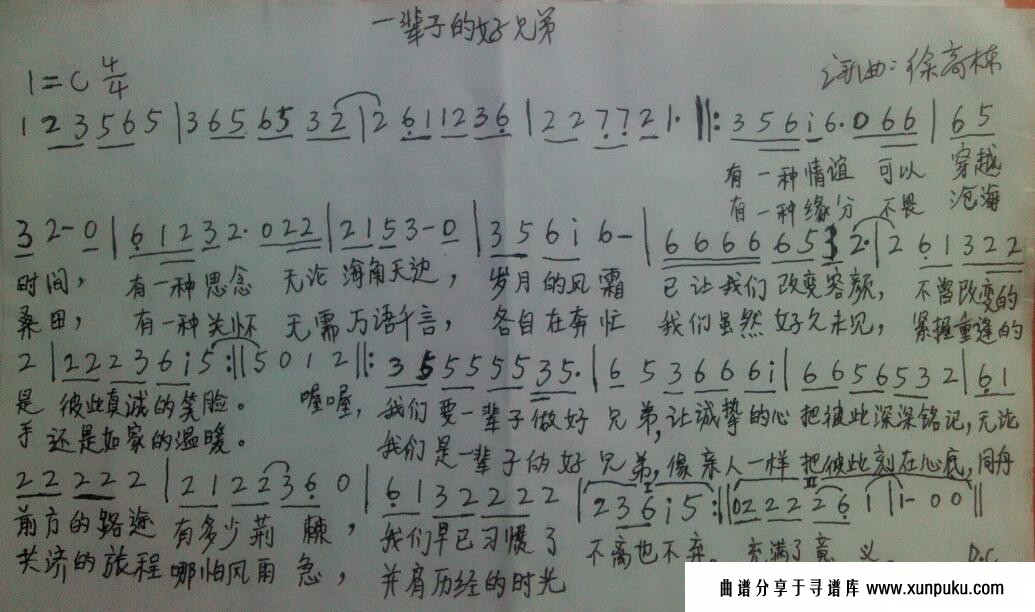 一辈子的好兄弟
1=C 4/4
词曲:徐高栋
1 2 3 5 6 5 | 3 6 5 6 5 3 2 | 2 6 1 1 2 3 6 | 2 2 7 7 2 1· ‖: 3 5 6 i 6· 0 6 6 | 6 5
有一种情谊 可以 穿越
有一种缘分 不畏 沧海
3 2 - 0 | 6 1 2 3 2· 0 2 2 | 2 1 5 3 - 0 | 3 5 6 i 6 - | 6 6 6 6 6 5 3 2· | 2 6 1 3 2 2
时间, 有一种思念 无论 海角天边, 岁月的风霜 已让我们改变容颜, 不曾改变的
桑田, 有一种关怀 无需 万语千言, 各自在奔忙 我们虽然好久未见, 紧握重逢的
2 | 2 2 2 3 6 i 5 :‖ 5 0 1 2 ‖: 3 5 5 5 5 5 3 5· | 6 5 3 6 6 6 i | 6 6 5 6 5 3 2 | 6 1
是 彼此真诚的笑脸。 喔喔, 我们要一辈子做好兄弟,让诚挚的心把彼此深深铭记,无论
手 还是如家的温暖。 我们是一辈子的好兄弟,像亲人一样把彼此刻在心底,同舟
2 2 2 2 2 | 2 1 2 2 3 6 0 | 6 1 3 2 2 2 2 | I 2 3 6 i 5 :‖ II 0 2 2 2 2 6 1 | 1 - 0 0 ‖
前方的路途 有多少荆棘, 我们早已习惯了 不离也不弃。 充满了意义。 D.C.
共济的旅程 哪怕风雨急, 并肩历经的时光
曲谱分享于寻谱库
www.xunpuku.com